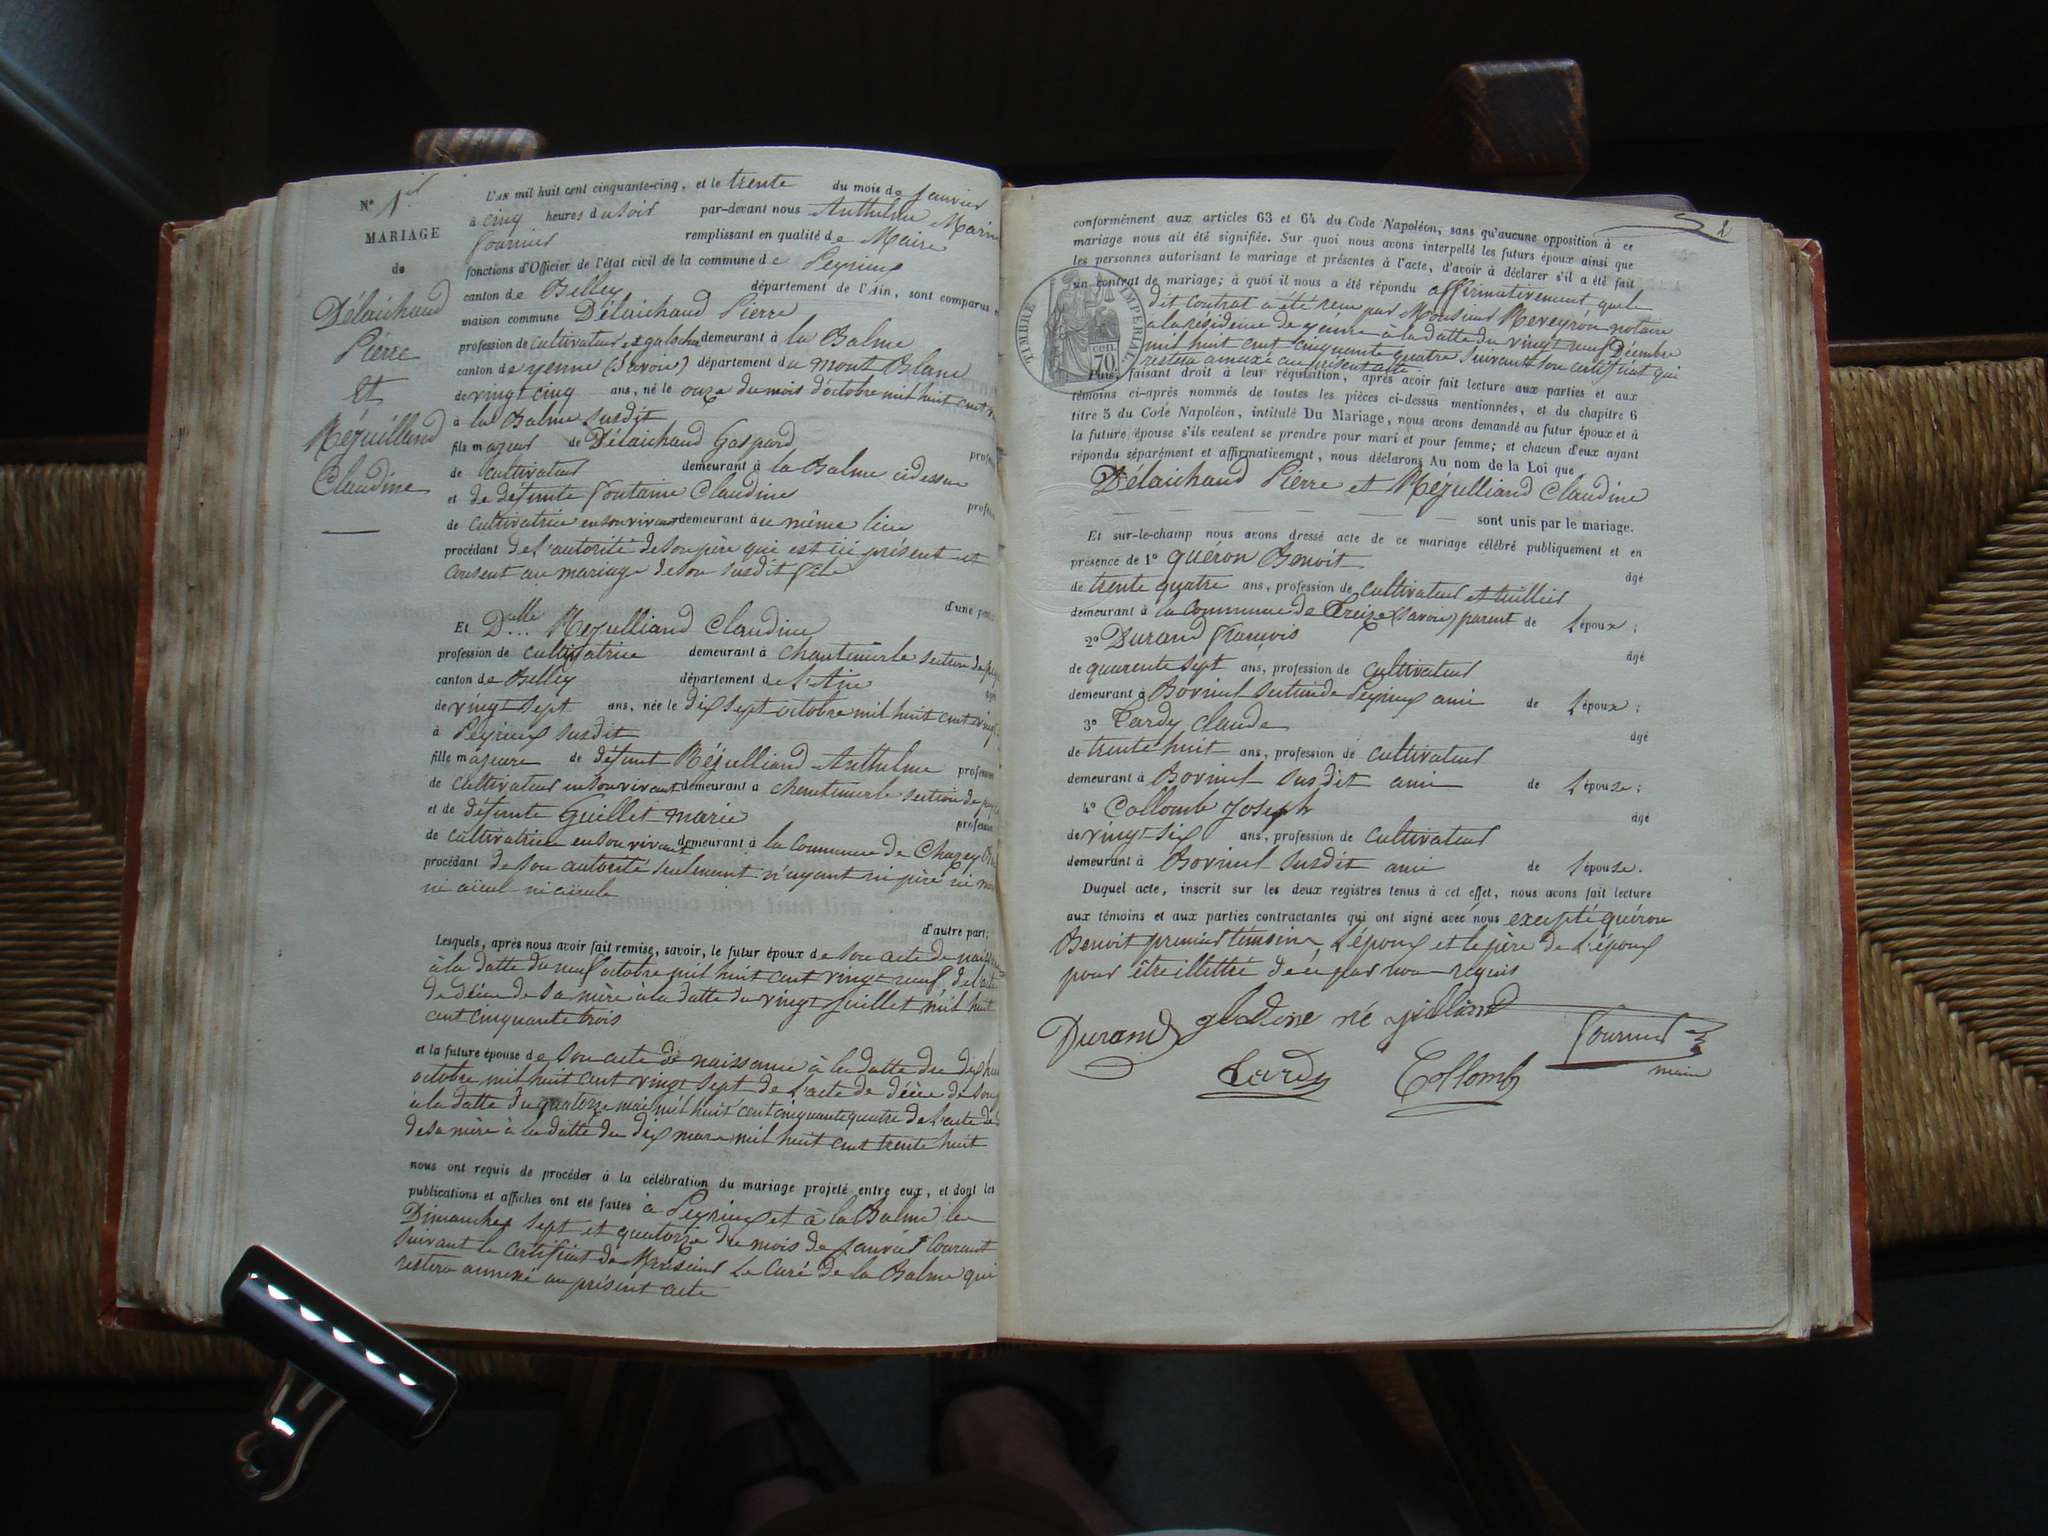 N° 1er
MARIAGE
de
Délaichaud
Pierre
et
Réjuilland
Claudine
L'AN mil huit cent cinquante-cinq, et le trente du mois de Janvier
à cinq heures du soir par-devant nous Anthelme Marin
fournier remplissant en qualité de Maire
fonctions d'Officier de l'état civil de la commune de Peyrieux
canton de Belley département de l'Ain, sont comparus
maison commune Délaichaud Pierre
profession de cultivateur et demeurant à la Balme
canton de yenne (Savoie) département du mont Blanc
de vingt cinq ans, né le onze du mois d'octobre mil huit cent
à la Balme susdit
fils majeur de Délaichaud Gaspard
de cultivateur demeurant à la Balme cidessus
et de défunte fontaine Claudine
de cultivatrice en son vivant demeurant au même lieu
procédant de l'autorité de son père qui est ici présent et
consent au mariage de son susdit fils
d'une part
Et Dlle Rejulliand Claudine
profession de cultivatrice demeurant à chantemerle section de
canton de Belley département de l'Ain
de vingt sept ans, née le dix sept octobre mil huit cent vingt
à Peyrieux susdit
fille majeure de défunt Réjulliand Anthelme profession
de cultivateur en son vivant demeurant à chantemerle section de
et de défunte Guillet marie profession
de cultivatrice en son vivant demeurant à la commune de Chazey
procédant de son autorité seulement n'ayant ni père ni mère
ni aïeul ni aïeule
d'autre part;
Lesquels, après nous avoir fait remise, savoir, le futur époux de son acte de naissance
à la datte du neuf octobre mil huit cent vingt neuf, de l'acte
de décè de sa mère à la datte du vingt juillet mil huit
cent cinquante trois
et la future épouse de son acte de naissance à la datte du dix huit
octobre mil huit cent vingt sept de l'acte de décèe de son
à la datte du quatorze mai mil huit cent cinquante quatre de l'acte de
de sa mère à la datte du dix mars mil huit cent trente huit
nous ont requis de procéder à la célébration du mariage projeté entre eux, et dont les
publications et affiches ont été faites à Peyrieux et à la Balme les
Dimanches sept et quatorze du mois de Janvier courant
suivant le certificat de Monsieur le Curé de la Balme qui
restera annexé au présent acte
2
conformément aux articles 63 et 64 du Code Napoléon, sans qu'aucune opposition à ce
mariage nous ait été signifiée. Sur quoi nous avons interpellé les futurs époux ainsi que
les personnes autorisant le mariage et présentes à l'acte, d'avoir à déclarer s'il a été fait
un contrat de mariage; à quoi il nous a été répondu affirmativement que le
dit contrat a été reçu par Monsieur Reveyron notaire
à la résidence de yenne à la datte du vingt neuf Décembre
mil huit cent cinquante quatre suivant son certificat qui
restera annexé au présent acte.
TIMBRE IMPERIAL
70 cen
Puis, faisant droit à leur réquisition, après avoir fait lecture aux parties et aux
témoins ci-après nommés de toutes les pièces ci-dessus mentionnées, et du chapitre 6
titre 5 du Code Napoléon, intitulé Du Mariage, nous avons demandé au futur époux et à
la future épouse s'ils veulent se prendre pour mari et pour femme; et chacun d'eux ayant
répondu séparément et affirmativement, nous déclarons Au nom de la Loi que
Délaichaud Pierre et Réjulliand Claudine
sont unis par le mariage.
Et sur-le-champ nous avons dressé acte de ce mariage célébré publiquement et en
présence de 1° quéron Benoit
âgé
de trente quatre ans, profession de cultivateur et
demeurant à la commune de (Savoie) parent de l'époux;
2° Durand françois
âgé
de quarente sept ans, profession de cultivateur
demeurant à Bovinel section de Peyrieux ami de l'époux;
3° Tardy claude
âgé
de trente huit ans, profession de cultivateur
demeurant à Bovinel susdit ami de l'épouse;
4° Collomb Joseph
âgé
de vingt six ans, profession de cultivateur
demeurant à Bovinel susdit ami de l'épouse.
Duquel acte, inscrit sur les deux registres tenus à cet effet, nous avons fait lecture
aux témoins et aux parties contractantes qui ont signé avec nous excepté quéron
Benoit premier témoin, L'époux et le père de L'époux
pour être illettré de ce par nous requis
Durand glodine ré jilliand fournier
maire
Tardy Collomb